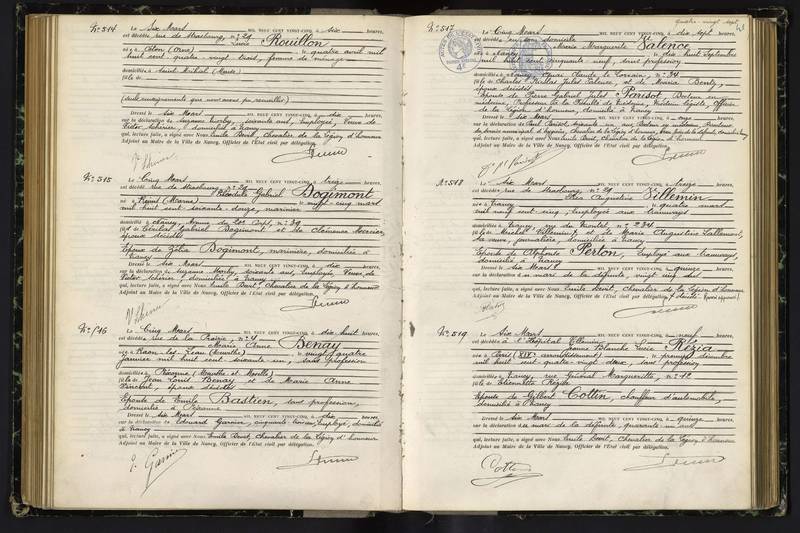 N° 514 Le Six Mars MIL NEUF CENT VINGT-CINQ, à six heures,
est décédée rue de Strasbourg, n° 29
Lucie Rouillon
née à (Orne) le quatre avril mil
huit cent quatre-vingt trois, femme de ménage
domiciliée à Saint Mihiel (Meuse)
fille de
(seuls renseignements que nous avons pu recueillir)
Dressé le six Mars MIL NEUF CENT VINGT-CINQ, à dix heures,
sur la déclaration de Suzanne soixante ans, Employée, Veuve de
Victor domiciliée à Nancy
qui, lecture faite, a signé avec Nous Emile Chevalier de la Légion d'honneur
Adjoint au Maire de la Ville de Nancy, Officier de l'Etat civil par délégation.
N° 515 Le Cinq Mars MIL NEUF CENT VINGT-CINQ, à treize heures,
est décédé rue de Strasbourg, n° 29
Gabriel Bogimont
né à (Marne) le vingt-cinq mars
mil huit cent soixante-douze, marinier
domicilié à Nancy, n° 39
fils de Gabriel Bogimont et de Clémence Mercier,
époux décédés
Epoux de Zélia Bogimont, marinière, domiciliée à
Nancy
Dressé le six Mars MIL NEUF CENT VINGT-CINQ, à dix heures,
sur la déclaration de Suzanne soixante ans, Employée, Veuve de
Victor domiciliée à Nancy
qui, lecture faite, a signé avec Nous Emile Chevalier de la Légion d'honneur
Adjoint au Maire de la Ville de Nancy, Officier de l'Etat civil par délégation.
N° 516 Le Cinq Mars MIL NEUF CENT VINGT-CINQ, à dix huit heures,
est décédée rue de la Prairie, n° 4
Marie Anne Benay
née à Raon-les-Leau (Meurthe) le vingt quatre
janvier mil huit cent soixante-un, sans profession
domiciliée à (Meurthe et Moselle)
fille de Jean Louis Benay et de Marie Anne
époux décédés
Epouse de Emile Bastien, sans profession,
domiciliée à
Dressé le six Mars MIL NEUF CENT VINGT-CINQ, à dix heures,
sur la déclaration de Edouard Garnier, cinquante employé, domicilié
à Nancy
qui, lecture faite, a signé avec Nous Emile Chevalier de la Légion d'honneur
Adjoint au Maire de la Ville de Nancy, Officier de l'Etat civil par délégation.
E. Garnier
Quatre-vingt sept
N° 517 Le Cinq Mars MIL NEUF CENT VINGT-CINQ, à dix sept heures,
est décédée en son domicile
Marie Marguerite Valence
née à Nancy le dix huit Septembre
mil huit cent cinquante-neuf, sans profession
domiciliée à Nancy, Claude le Lorrain, n° 34
fille de Charles Nicolas Jules Valence, et de Maria
époux décédés
Epouse de Pierre Gabriel Jules Parisot, Docteur en
médecine, Professeur à la Faculté de médecine, Médecin légiste, Officier
de la Légion d'honneur, domicilié à Nancy
Dressé le six Mars MIL NEUF CENT VINGT-CINQ, à onze heures,
sur la déclaration de Paul Parisot, soixante ans, Docteur en médecine, Directeur
du bureau municipal d'hygiène, Chevalier de la Légion d'honneur, domicilié à Nancy
qui, lecture faite, a signé avec Nous Emile Chevalier de la Légion d'honneur
Adjoint au Maire de la Ville de Nancy, Officier de l'Etat civil par délégation.
N° 518 Le Six Mars MIL NEUF CENT VINGT-CINQ, à treize heures,
est décédée rue de Strasbourg, n° 29
Augustine Villemin
née à Nancy le quatre mars
mil neuf cent cinq, employée aux tramways
domiciliée à Nancy, rue n° 234
fille de Villemin, et de Marie Augustine Lallement,
sa veuve, journalière, domiciliée à Nancy
Epouse de Alphonse Perton, Employé aux tramways,
domicilié à Nancy
Dressé le six Mars MIL NEUF CENT VINGT-CINQ, à quinze heures,
sur la déclaration du mari de la défunte, vingt neuf ans
qui, lecture faite, a signé avec Nous Emile Chevalier de la Légion d'honneur
Adjoint au Maire de la Ville de Nancy, Officier de l'Etat civil par délégation.
N° 519 Le Six Mars MIL NEUF CENT VINGT-CINQ, à neuf heures,
est décédée à l'Hôpital Villemin
Jeanne Blanche Lucie Rézia
née à Paris (XIVe arrondissement) le premier décembre
mil huit cent quatre-vingt deux, sans profession
domiciliée à Nancy, rue Général Margueritte, n° 12
fille de Etiennette Rézia
Epouse de Gilbert Cottin, chauffeur d'automobile,
domicilié à Nancy
Dressé le six Mars MIL NEUF CENT VINGT-CINQ, à quinze heures,
sur la déclaration du mari de la défunte, quarante un ans
qui, lecture faite, a signé avec Nous Emile Chevalier de la Légion d'honneur
Adjoint au Maire de la Ville de Nancy, Officier de l'Etat civil par délégation.
Cottin